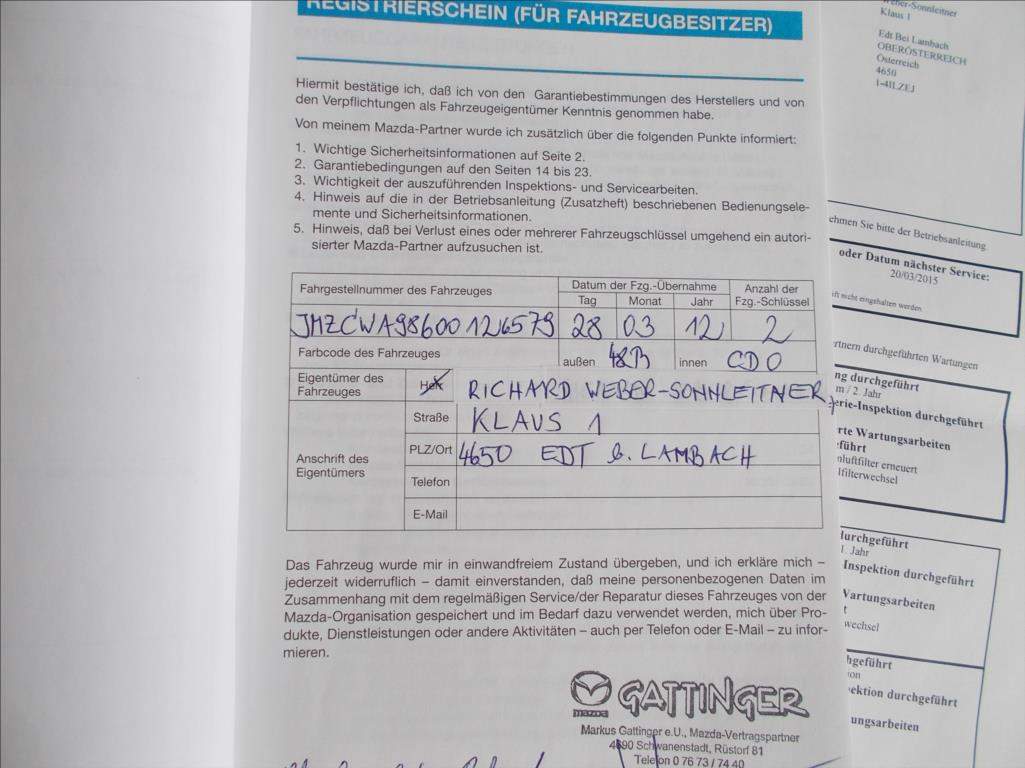 REGISTRIERSCHEIN (FÜR FAHRZEUGBESITZER)
Hiermit bestätige ich, daß ich von den Garantiebestimmungen des Herstellers und von
den Verpflichtungen als Fahrzeugeigentümer Kenntnis genommen habe.
Von meinem Mazda-Partner wurde ich zusätzlich über die folgenden Punkte informiert:
1. Wichtige Sicherheitsinformationen auf Seite 2.
2. Garantiebedingungen auf den Seiten 14 bis 23.
3. Wichtigkeit der auszuführenden Inspektions- und Servicearbeiten.
4. Hinweis auf die in der Betriebsanleitung (Zusatzheft) beschriebenen Bedienungsele-
mente und Sicherheitsinformationen.
5. Hinweis, daß bei Verlust eines oder mehrerer Fahrzeugschlüssel umgehend ein autori-
sierter Mazda-Partner aufzusuchen ist.
Fahrgestellnummer des Fahrzeuges
Datum der Fzg.-Übernahme
Tag Monat Jahr
Anzahl der
Fzg.-Schlüssel
JMZCWA98600126579 28 03 12 2
Farbcode des Fahrzeuges außen 42B innen CDO
Eigentümer des
Fahrzeuges
RICHARD WEBER-SONNLEITNER
Anschrift des
Eigentümers
Straße KLAUS 1
PLZ/Ort 4650 EDT b. LAMBACH
Telefon
E-Mail
Das Fahrzeug wurde mir in einwandfreiem Zustand übergeben, und ich erkläre mich –
jederzeit widerruflich – damit einverstanden, daß meine personenbezogenen Daten im
Zusammenhang mit dem regelmäßigen Service/der Reparatur dieses Fahrzeuges von der
Mazda-Organisation gespeichert und im Bedarf dazu verwendet werden, mich über Pro-
dukte, Dienstleistungen oder andere Aktivitäten – auch per Telefon oder E-Mail – zu infor-
mieren.
mazda GATTINGER
Markus Gattinger e.U., Mazda-Vertragspartner
4690 Schwanenstadt, Rüstorf 81
Telefon 0 76 73 / 74 40
Weber-Sonnleitner
Klaus 1
Edt Bei Lambach
OBERÖSTERREICH
Österreich
4650
1-4ILZEJ
ehmen Sie bitte der Betriebsanleitung.
oder Datum nächster Service:
20/03/2015
ft nicht eingehalten werden
rtnern durchgeführten Wartungen
ng durchgeführt
m / 2. Jahr
erie-Inspektion durchgeführt
rte Wartungsarbeiten
eführt
nluftfilter erneuert
lfilterwechsel
durchgeführt
1. Jahr
Inspektion durchgeführt
Wartungsarbeiten
t
wechsel
hgeführt
ion
ektion durchgeführt
ungsarbeiten